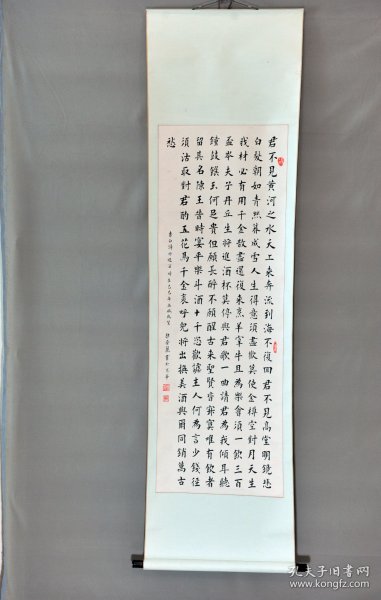 君不見黃河之水天上來奔流到海不復回君不見高堂明鏡悲
白髮朝如青絲暮成雪人生得意須盡歡莫使金樽空對月天生
我材必有用千金散盡還復來烹羊宰牛且為樂會須一飲三百
盃岑夫子丹丘生將進酒杯莫停與君歌一曲請君為我傾耳聽
鐘鼓饌玉何足貴但願長醉不願醒古來聖賢皆寂寞唯有飲者
留其名陳王昔時宴平樂斗酒十千恣歡謔主人何為言少錢徑
須沽取對君酌五花馬千金裘呼兒將出換美酒與爾同銷萬古
愁
李白詩將進酒
孔夫子旧书网
www.kongfz.com